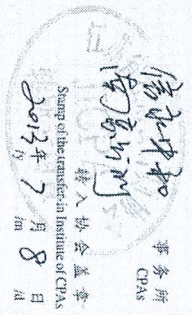 信永中和
事务所
CPAs
转入协会盖章
Stamp of the transfer-in Institute of CPAs
2013年7月8日
/y /m /d